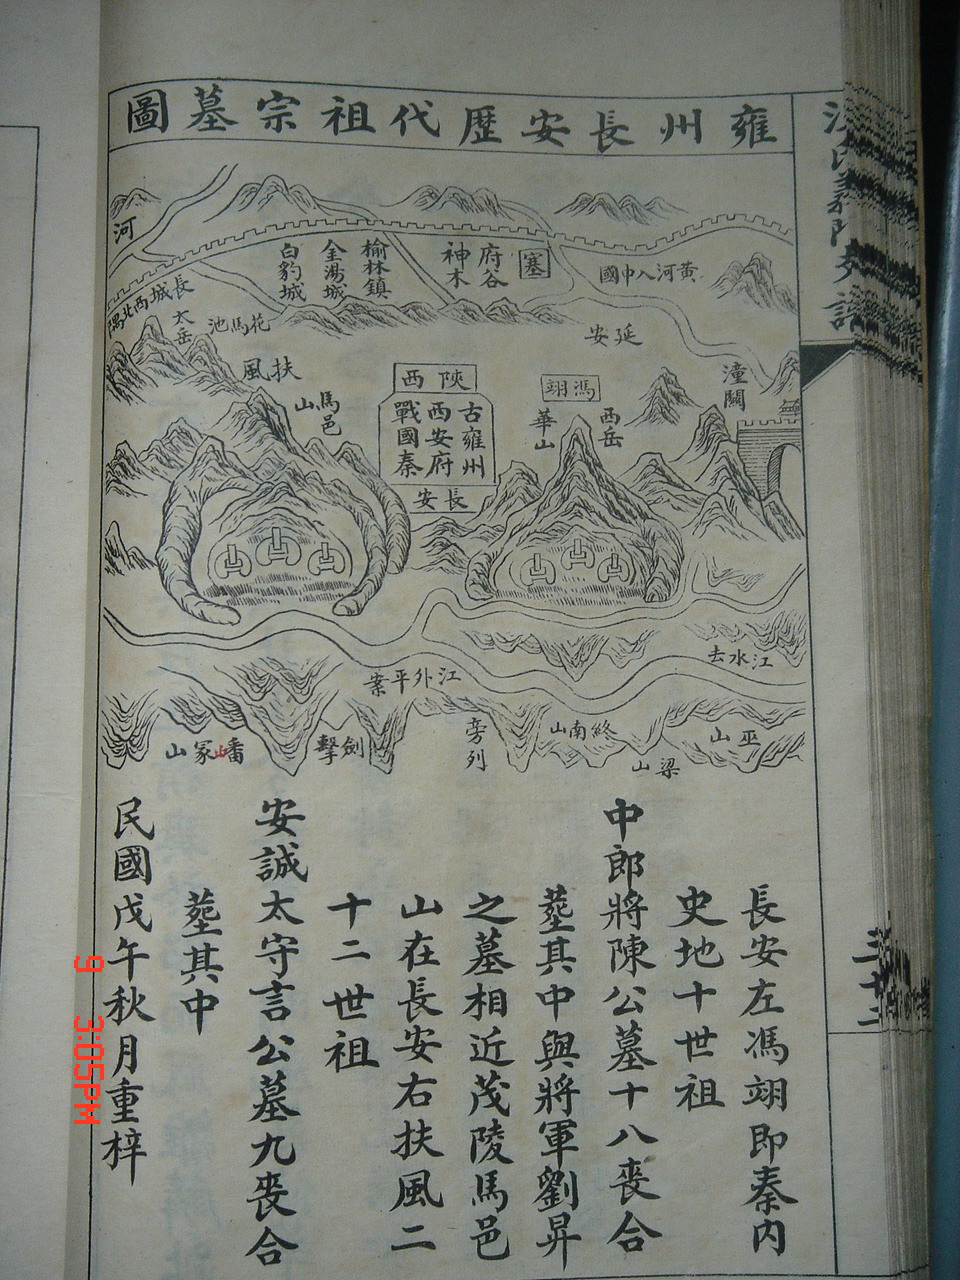 雍州長安歷代祖宗墓圖
河
長城西北隅
白豹城
金湯城
榆林鎮
神木
府谷
塞
黃河入中國
太岳
花馬池
延安
扶風
馬邑山
陝西
古雍州
西安府
戰國秦
長安
馮翊
西岳
華山
潼關
江水去
江外平案
嶓冢山
劍擊
旁列
終南山
梁山
巫山
長安左馮翊即秦內
史地十世祖
中郎將陳公墓十八喪合
塟其中與將軍劉昇
之墓相近茂陵馬邑
山在長安右扶風二
十二世祖
安誠太守言公墓九喪合
塟其中
民國戊午秋月重梓
9 3:05PM